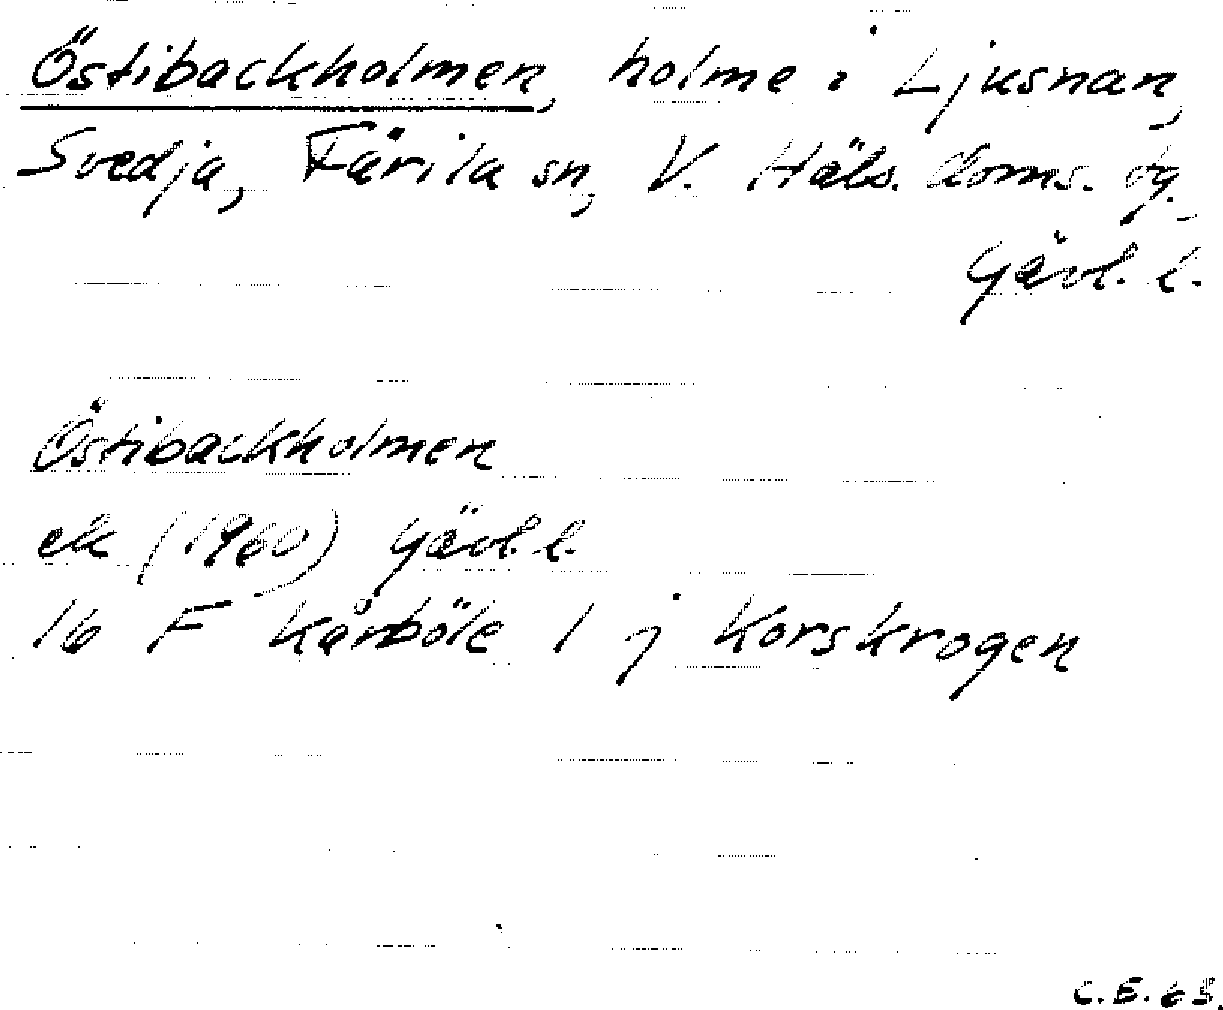 Östibackholmen, holme i Ljusnan,
Svedja, Färila sn, V. Häls. doms. tg.,
Gävl. l.
Östibackholmen
ek (1960) Gävl. l.
16 F Kårböle 1 j Korskrogen
C.E. 63.